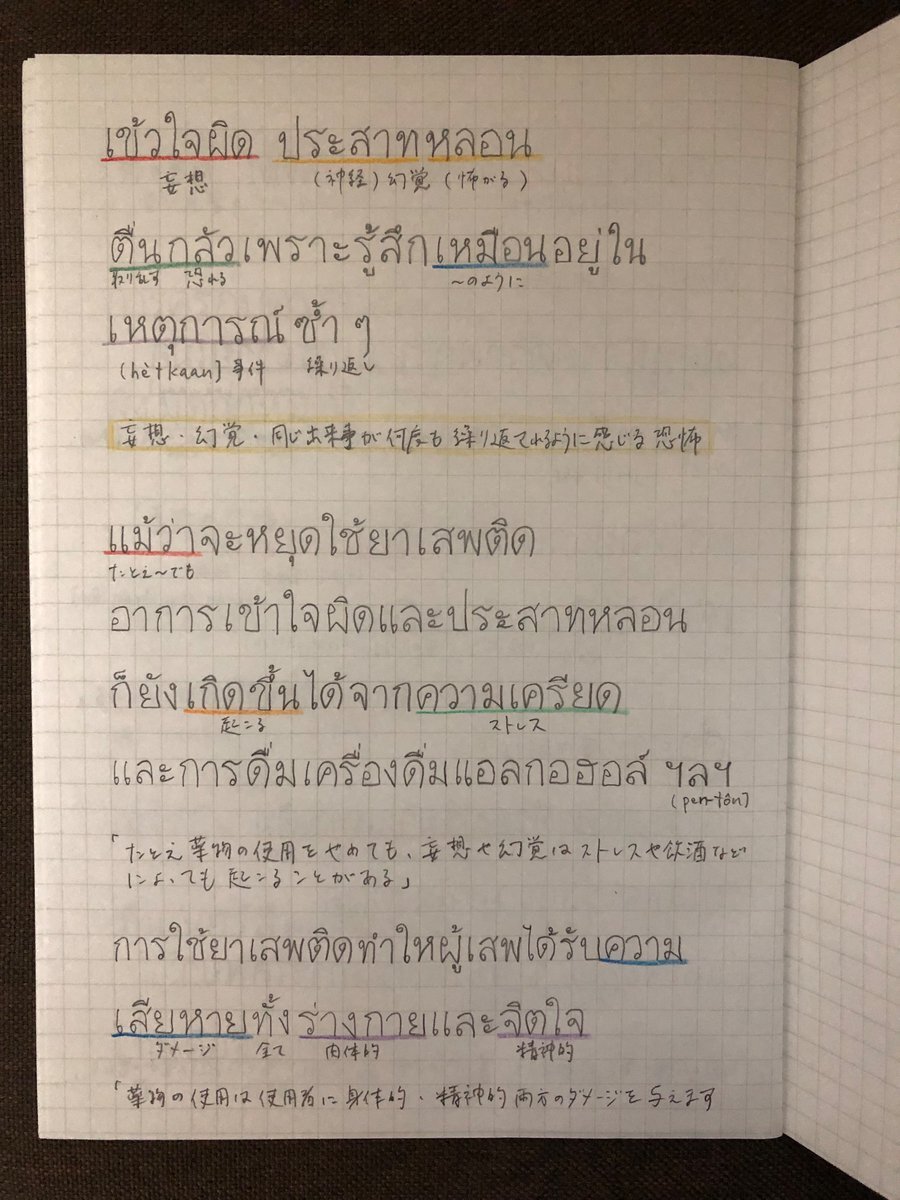 เข้วใจผิด ประสาทหลอน
妄想 (神経)幻覚(怖がる)
ตื่นกลัวเพราะรู้สึกเหมือนอยู่ใน
取り乱す 恐れる 〜のように
เหตุการณ์ ซ้ำ ๆ
(hètkaan] 事件 繰り返し
妄想・幻覚・同じ出来事が何度も繰り返てれるように感じる恐怖
แม้ว่าจะหยุดใช้ยาเสพติด
たとえ〜でも
อาการเข้าใจผิดและประสาทหลอน
ก็ยังเกิดขึ้นได้จากความเครียด
起こる ストレス
และการดื่มเครื่องดื่มแอลกอฮอล์ ฯลฯ
(pen-tôn]
「たとえ薬物の使用をやめても、妄想や幻覚はストレスや飲酒など
によっても起こることがある」
การใช้ยาเสพติดทำใหผู้เสพได้รับความ
เสียหายทั้งร่างกายและจิตใจ
ダメージ 全て 肉体的 精神的
「薬物の使用は使用者に身体的・精神的両方のダメージを与えます